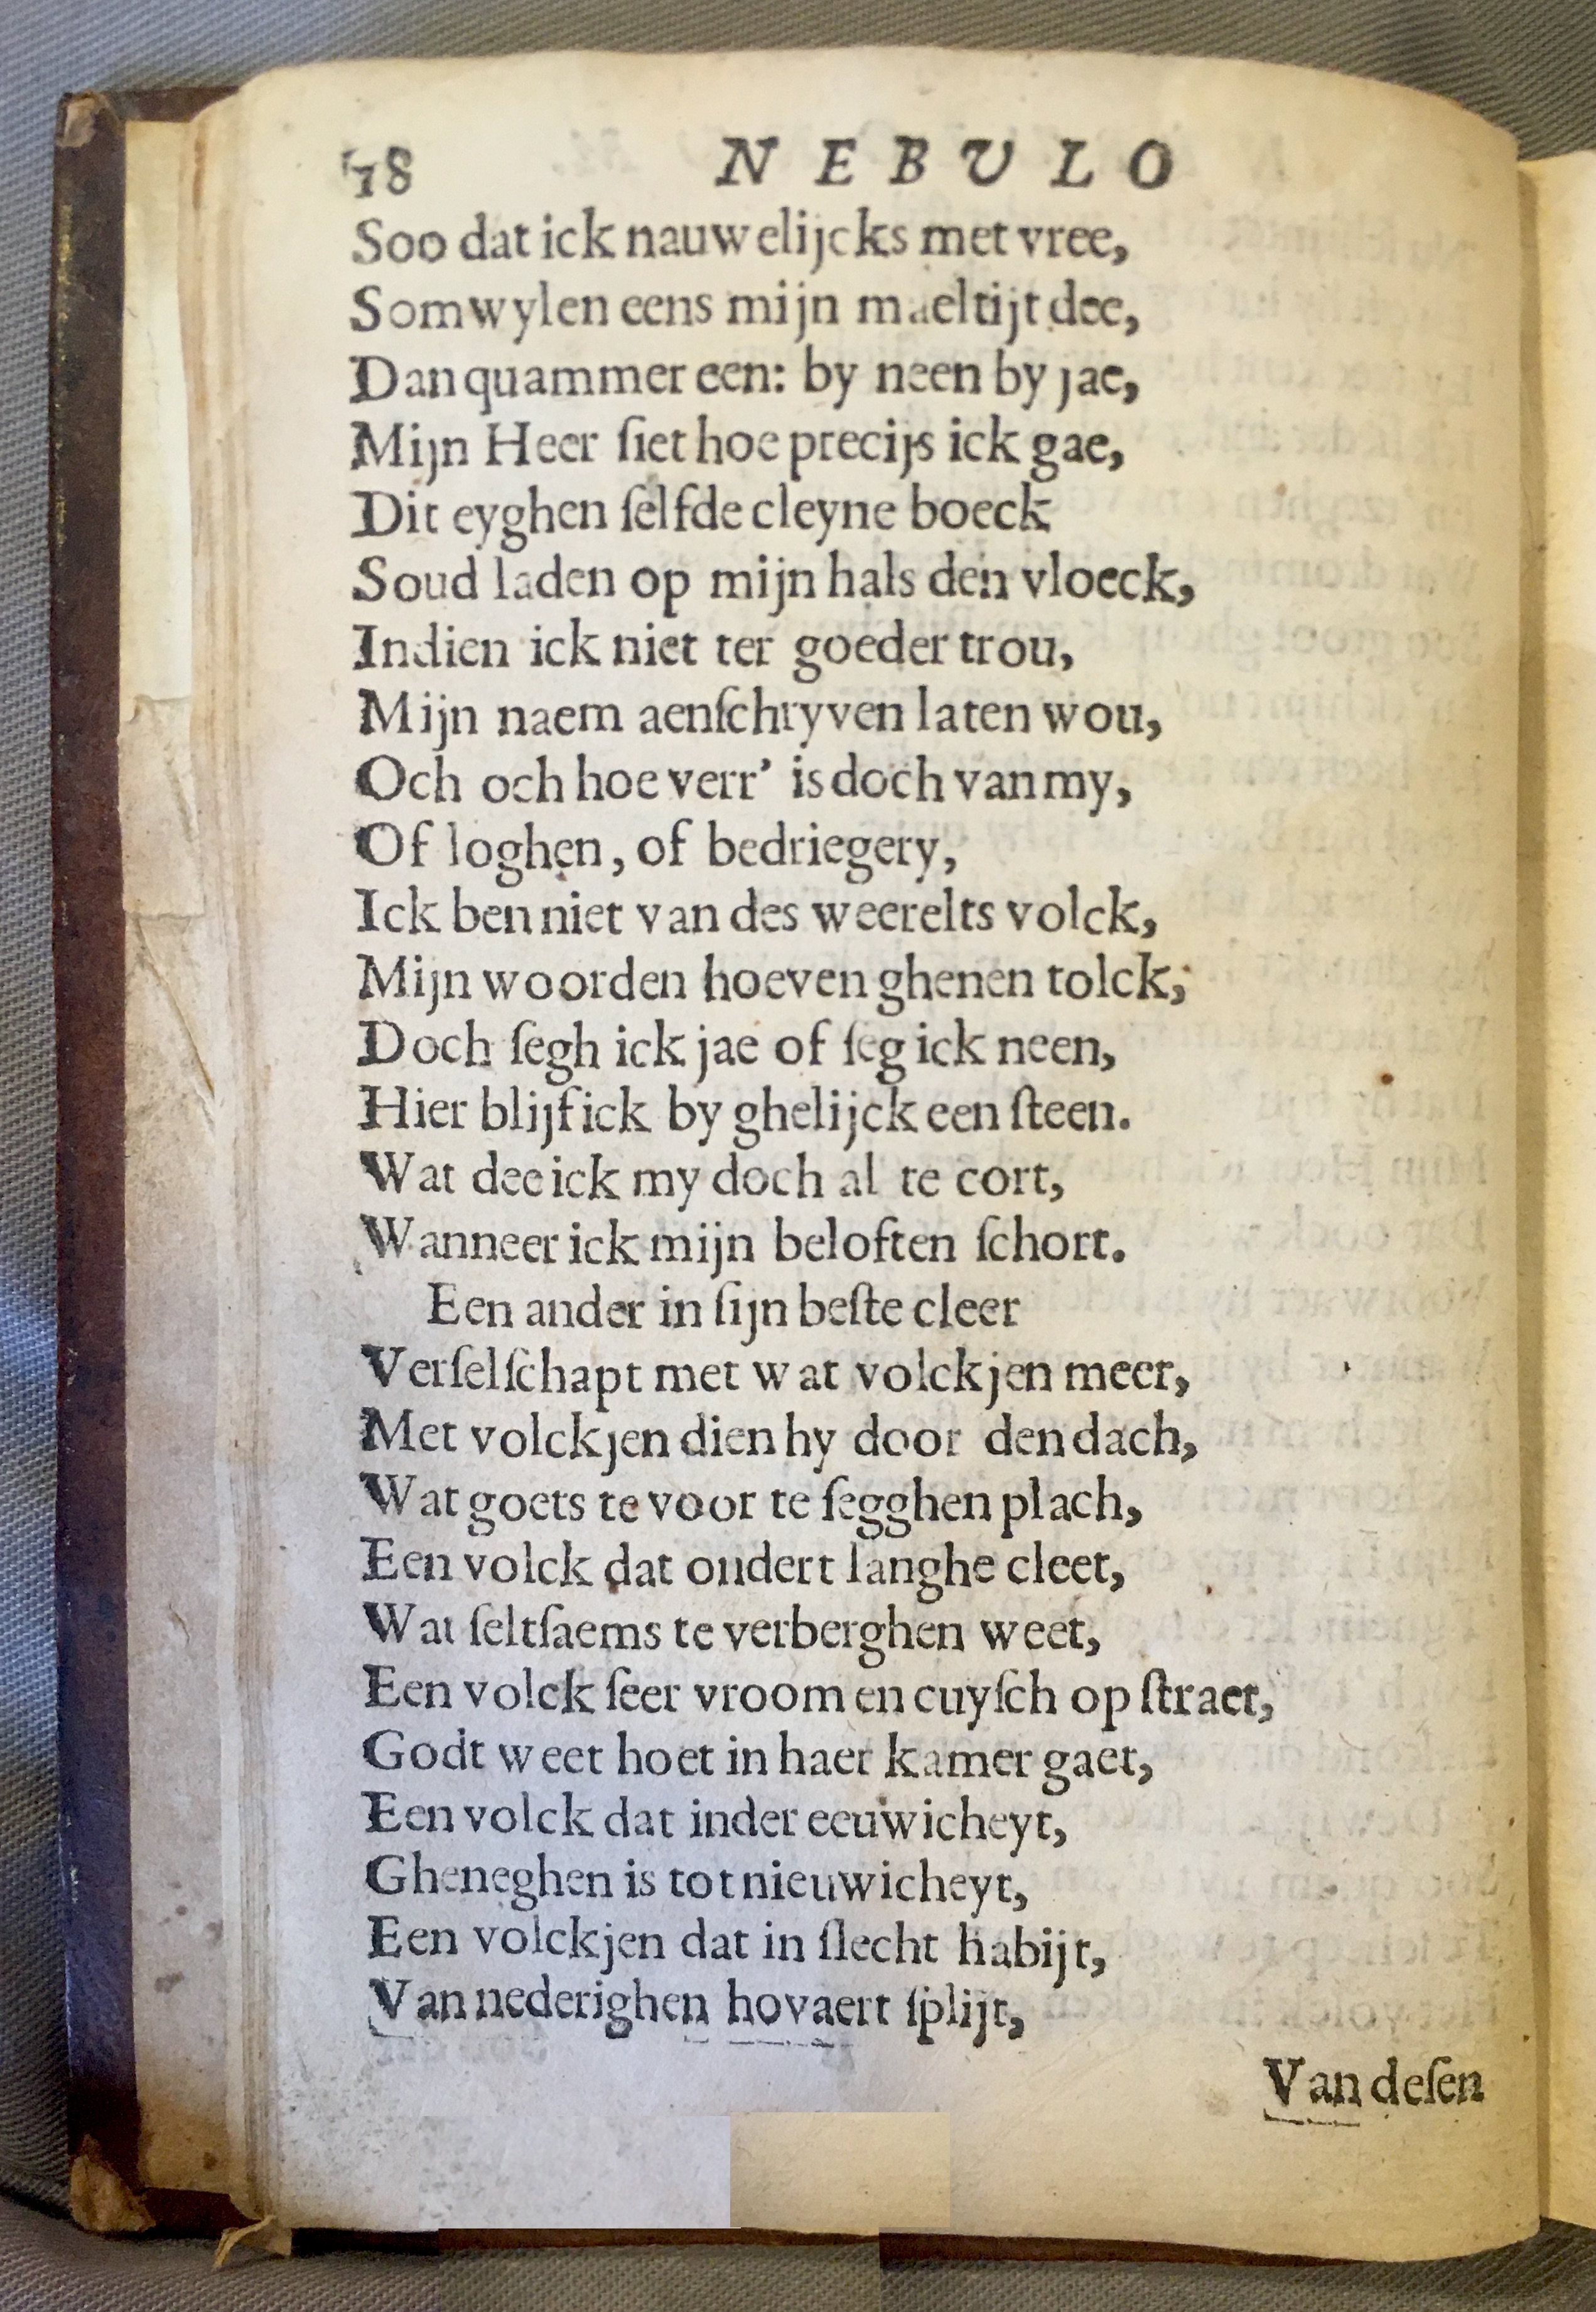 78 NEBVLO
Soo dat ick nauwelijcks met vree,
Somwylen eens mijn maeltijt dee,
Dan quammer een: by neen by jae,
Mijn Heer ſiet hoe precijs ick gae,
Dit eyghen ſelfde cleyne boeck
Soud laden op mijn hals den vloeck,
Indien ick niet ter goeder trou,
Mijn naem aenſchryven laten wou,
Och och hoe verr’ is doch van my,
Of loghen, of bedriegery,
Ick ben niet van des weerelts volck,
Mijn woorden hoeven ghenen tolck,
Doch ſegh ick jae of ſeg ick neen,
Hier blijf ick by ghelijck een ſteen.
Wat dee ick my doch al te cort,
Wanneer ick mijn beloften ſchort.
Een ander in ſijn beſte cleer
Verſelſchapt met wat volckjen meer,
Met volckjen dien hy door den dach,
Wat goets te voor te ſegghen plach,
Een volck dat ondert langhe cleet,
Wat ſeltſaems te verberghen weet,
Een volck ſeer vroom en cuyſch op ſtraet,
Godt weet hoet in haer kamer gaet,
Een volck dat inder eeuwicheyt,
Gheneghen is tot nieuwicheyt,
Een volckjen dat in ſlecht habijt,
Van nederighen hovaert ſplijt,
Van deſen